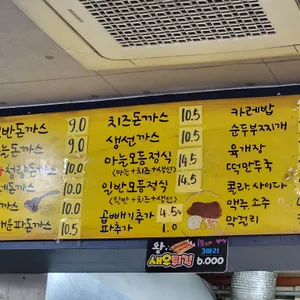 돈까스 9.0
돈까스 9.0
돈까스 10.0
돈까스 10.0
10.0
파돈까스 10.5
치즈돈까스 10.5
생선까스 10.5
마늘모듬정식 14.5
(마늘+치즈+생선)
일반모듬정식 14.5
(일반+치즈+생선)
곱빼기추가 4.5
파추가 1.0
카레밥
순두부찌개
육개장
떡만두국
콜라.사이다
맥주 소주
막걸리
왕
새우튀김
3마리
6.000